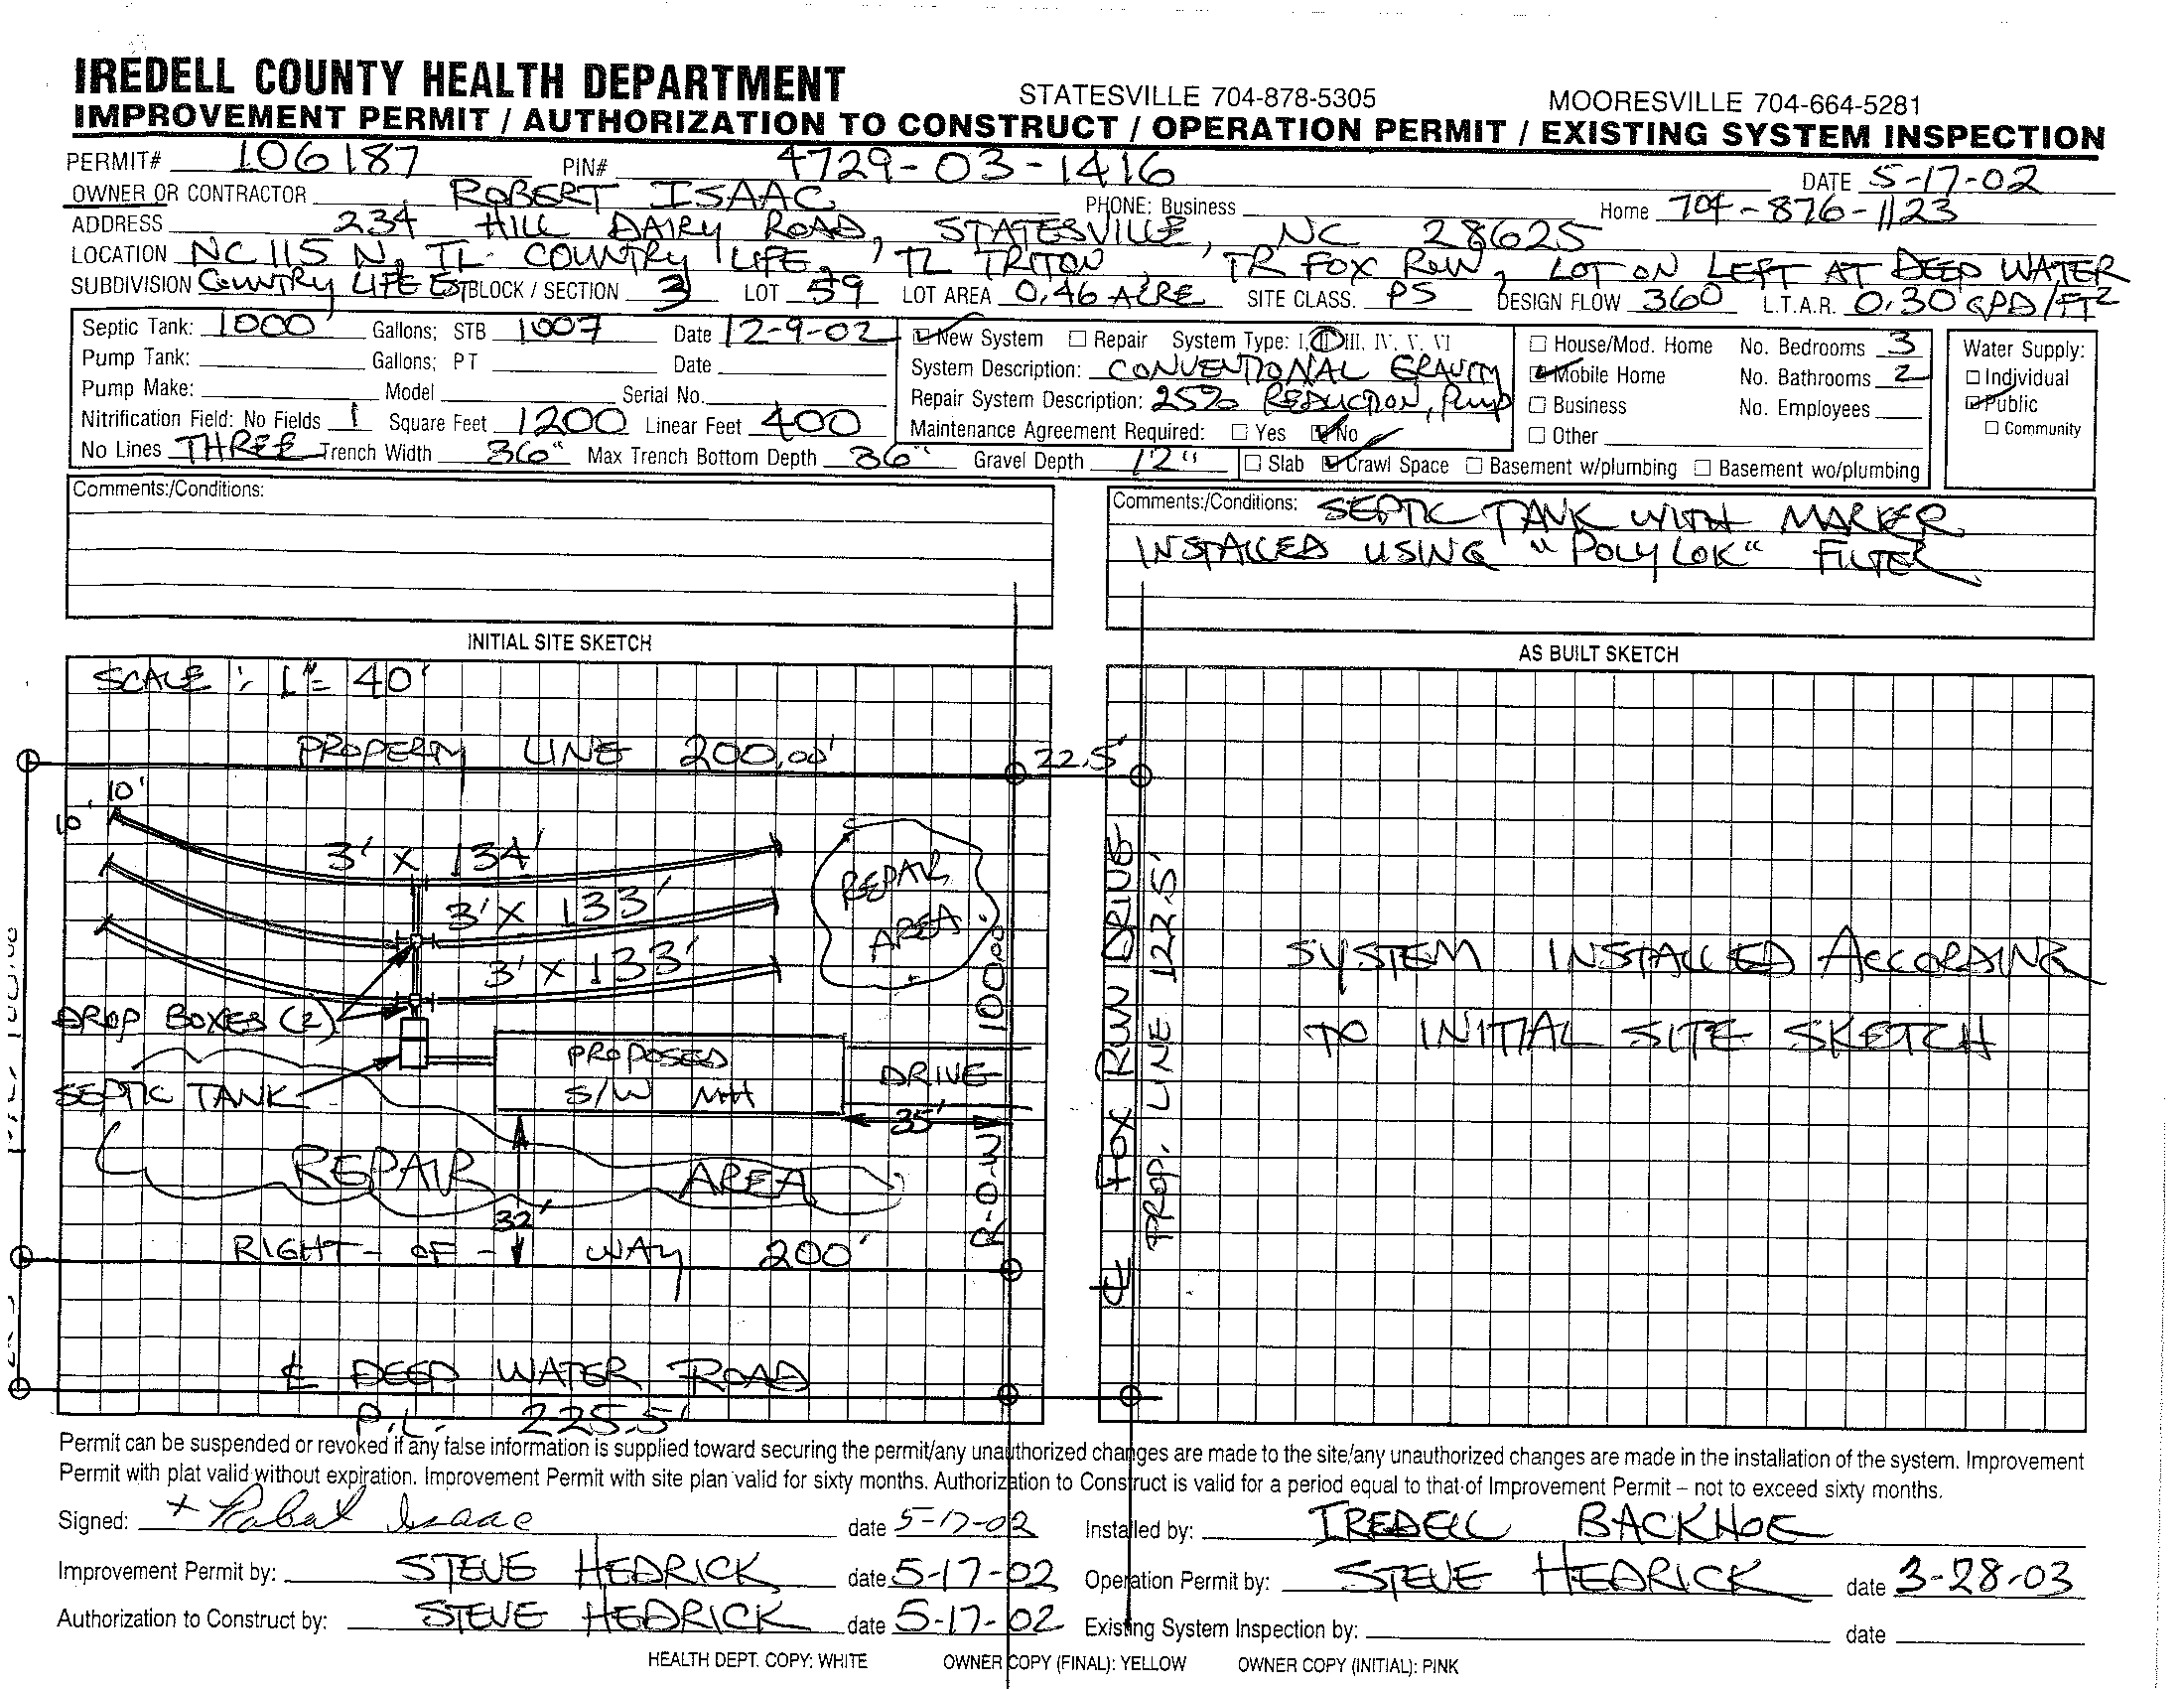 IREDELL COUNTY HEALTH DEPARTMENT STATESVILLE 704-878-5305 MOORESVILLE 704-664-5281
IMPROVEMENT PERMIT / AUTHORIZATION TO CONSTRUCT / OPERATION PERMIT / EXISTING SYSTEM INSPECTION
PERMIT# 106187 PIN# 4729-03-1416 DATE 5-17-02
OWNER OR CONTRACTOR ROBERT ISAAC PHONE: Business Home 704-876-1123
ADDRESS 234 HILL DAIRY ROAD, STATESVILLE, NC 28625
LOCATION NC 115 N, TL COUNTRY LIFE, TL TRITON, TR FOX RUN, LOT ON LEFT AT DEEP WATER
SUBDIVISION COUNTRY LIFE EST BLOCK / SECTION 3 LOT 59 LOT AREA 0.46 ACRE SITE CLASS. PS DESIGN FLOW 360 L.T.A.R. 0.30 GPD/FT²
Septic Tank: 1000 Gallons; STB 1007 Date 12-9-02
Pump Tank: Gallons; PT Date
Pump Make: Model Serial No.
Nitrification Field: No Fields 1 Square Feet 1200 Linear Feet 400
No Lines THREE Trench Width 36" Max Trench Bottom Depth 36" Gravel Depth 12"
New System Repair System Type: I, II, III, IV, V, VI
System Description: CONVENTIONAL GRAVITY
Repair System Description: 25% REDUCTION, PUMP
Maintenance Agreement Required: Yes No
Slab Crawl Space Basement w/plumbing Basement wo/plumbing
House/Mod. Home No. Bedrooms 3
Mobile Home No. Bathrooms 2
Business No. Employees
Other
Water Supply:
Individual
Public
Community
Comments:/Conditions:
Comments:/Conditions: SEPTIC TANK WITH MARKER
INSTALLED USING "POLYLOK" FILTER
INITIAL SITE SKETCH
SCALE: 1"= 40'
PROPERTY LINE 200.00'
22.5'
10'
10'
3' X 134'
3' X 133'
3' X 133'
REPAIR
AREA
100.00'
DROP BOXES (2)
SEPTIC TANK
PROPOSED
S/W MH
DRIVE
35'
REPAIR AREA
32'
R-O-W
RIGHT-OF-WAY 200'
℄ DEEP WATER ROAD
P.L. 225.5'
℄ FOX RUN DRIVE
PROP. LINE 122.5'
AS BUILT SKETCH
SYSTEM INSTALLED ACCORDING
TO INITIAL SITE SKETCH
Permit can be suspended or revoked if any false information is supplied toward securing the permit/any unauthorized changes are made to the site/any unauthorized changes are made in the installation of the system. Improvement
Permit with plat valid without expiration. Improvement Permit with site plan valid for sixty months. Authorization to Construct is valid for a period equal to that of Improvement Permit – not to exceed sixty months.
Signed: x Robert Isaac date 5-17-02 Installed by: IREDELL BACKHOE
Improvement Permit by: STEVE HEDRICK date 5-17-02 Operation Permit by: STEVE HEDRICK date 3-28-03
Authorization to Construct by: STEVE HEDRICK date 5-17-02 Existing System Inspection by: date
HEALTH DEPT. COPY: WHITE OWNER COPY (FINAL): YELLOW OWNER COPY (INITIAL): PINK